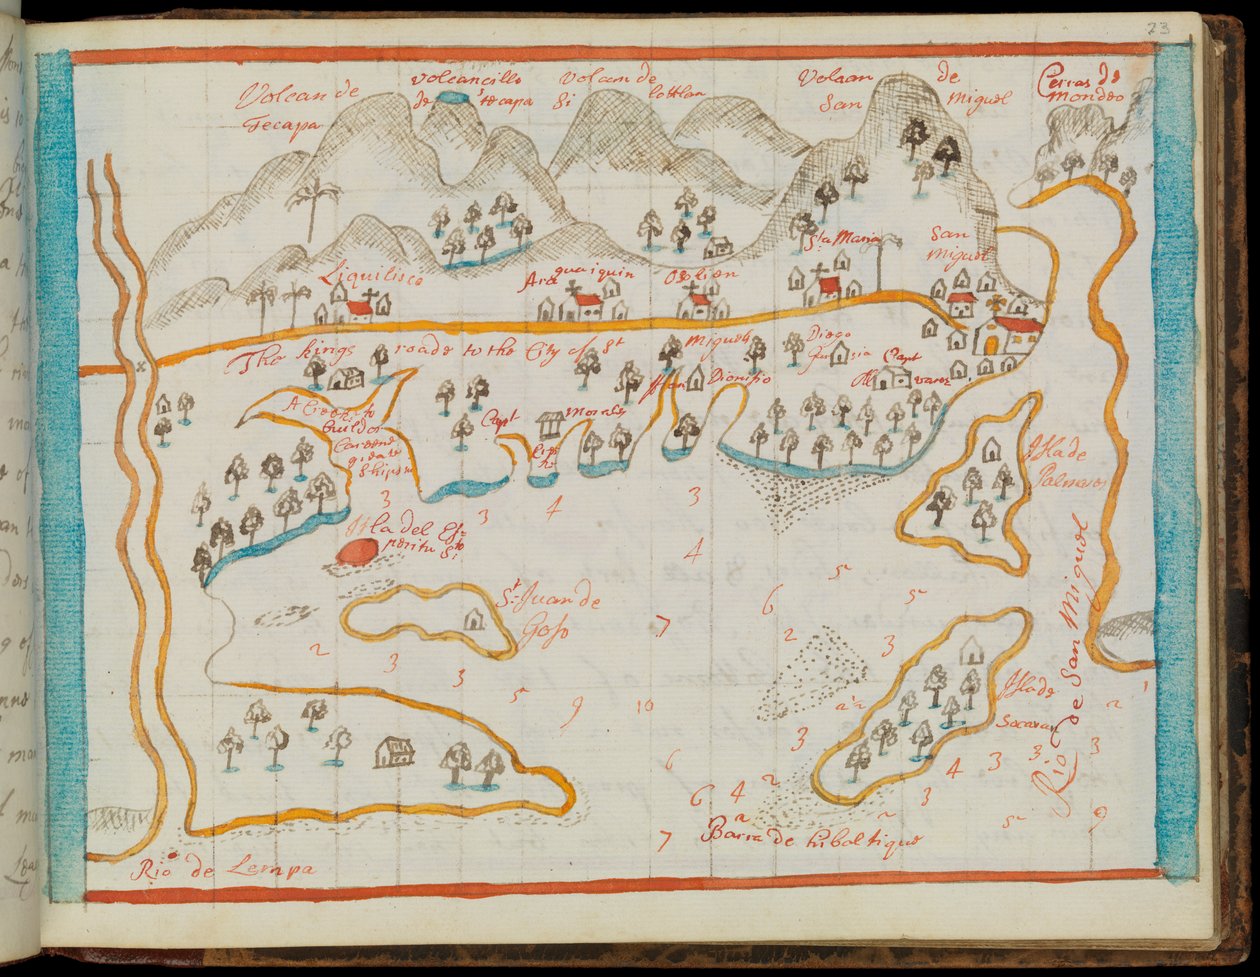 23
Volcan de
Tecapa
Volcancillo
de tecapa
Volcan de
Si lotlan
Volcan de
San Miguel
Cerras de
mondeo
Liquilisco
Ara guaiquin
Oxlien
Sta Maria
San
Miguel
The kings roade to the City of St Miguel
Diego
Capt
varez
San Dionisio
A Creeke to
build or
Careene
Ships in
Capt Morales
3
3
4
3
Isla del Es=
peritu Sto
4
5
Isla de
Palmeros
St Juan de
Goso
6
5
7
2
3
2
3
3
5
9
10
Isla de
3
6
2
4
3
3
3
6
4
3
7
Barra de hiboltique
5
9
Rio de Lempa
Rio de San Miguel